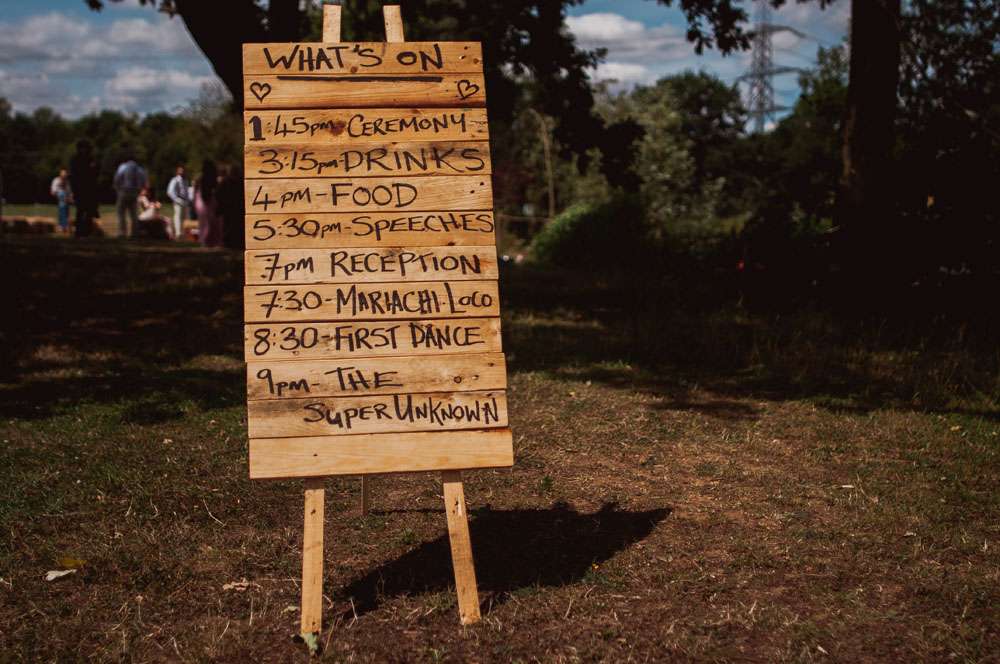 WHAT'S ON
1:45pm-CEREMONY
3:15pm-DRINKS
4PM-FOOD
5:30pm-SPEECHES
7pm RECEPTION
7:30-MARIACHI LOCO
8:30-FIRST DANCE
9PM-THE
SUPERUNKNOWN